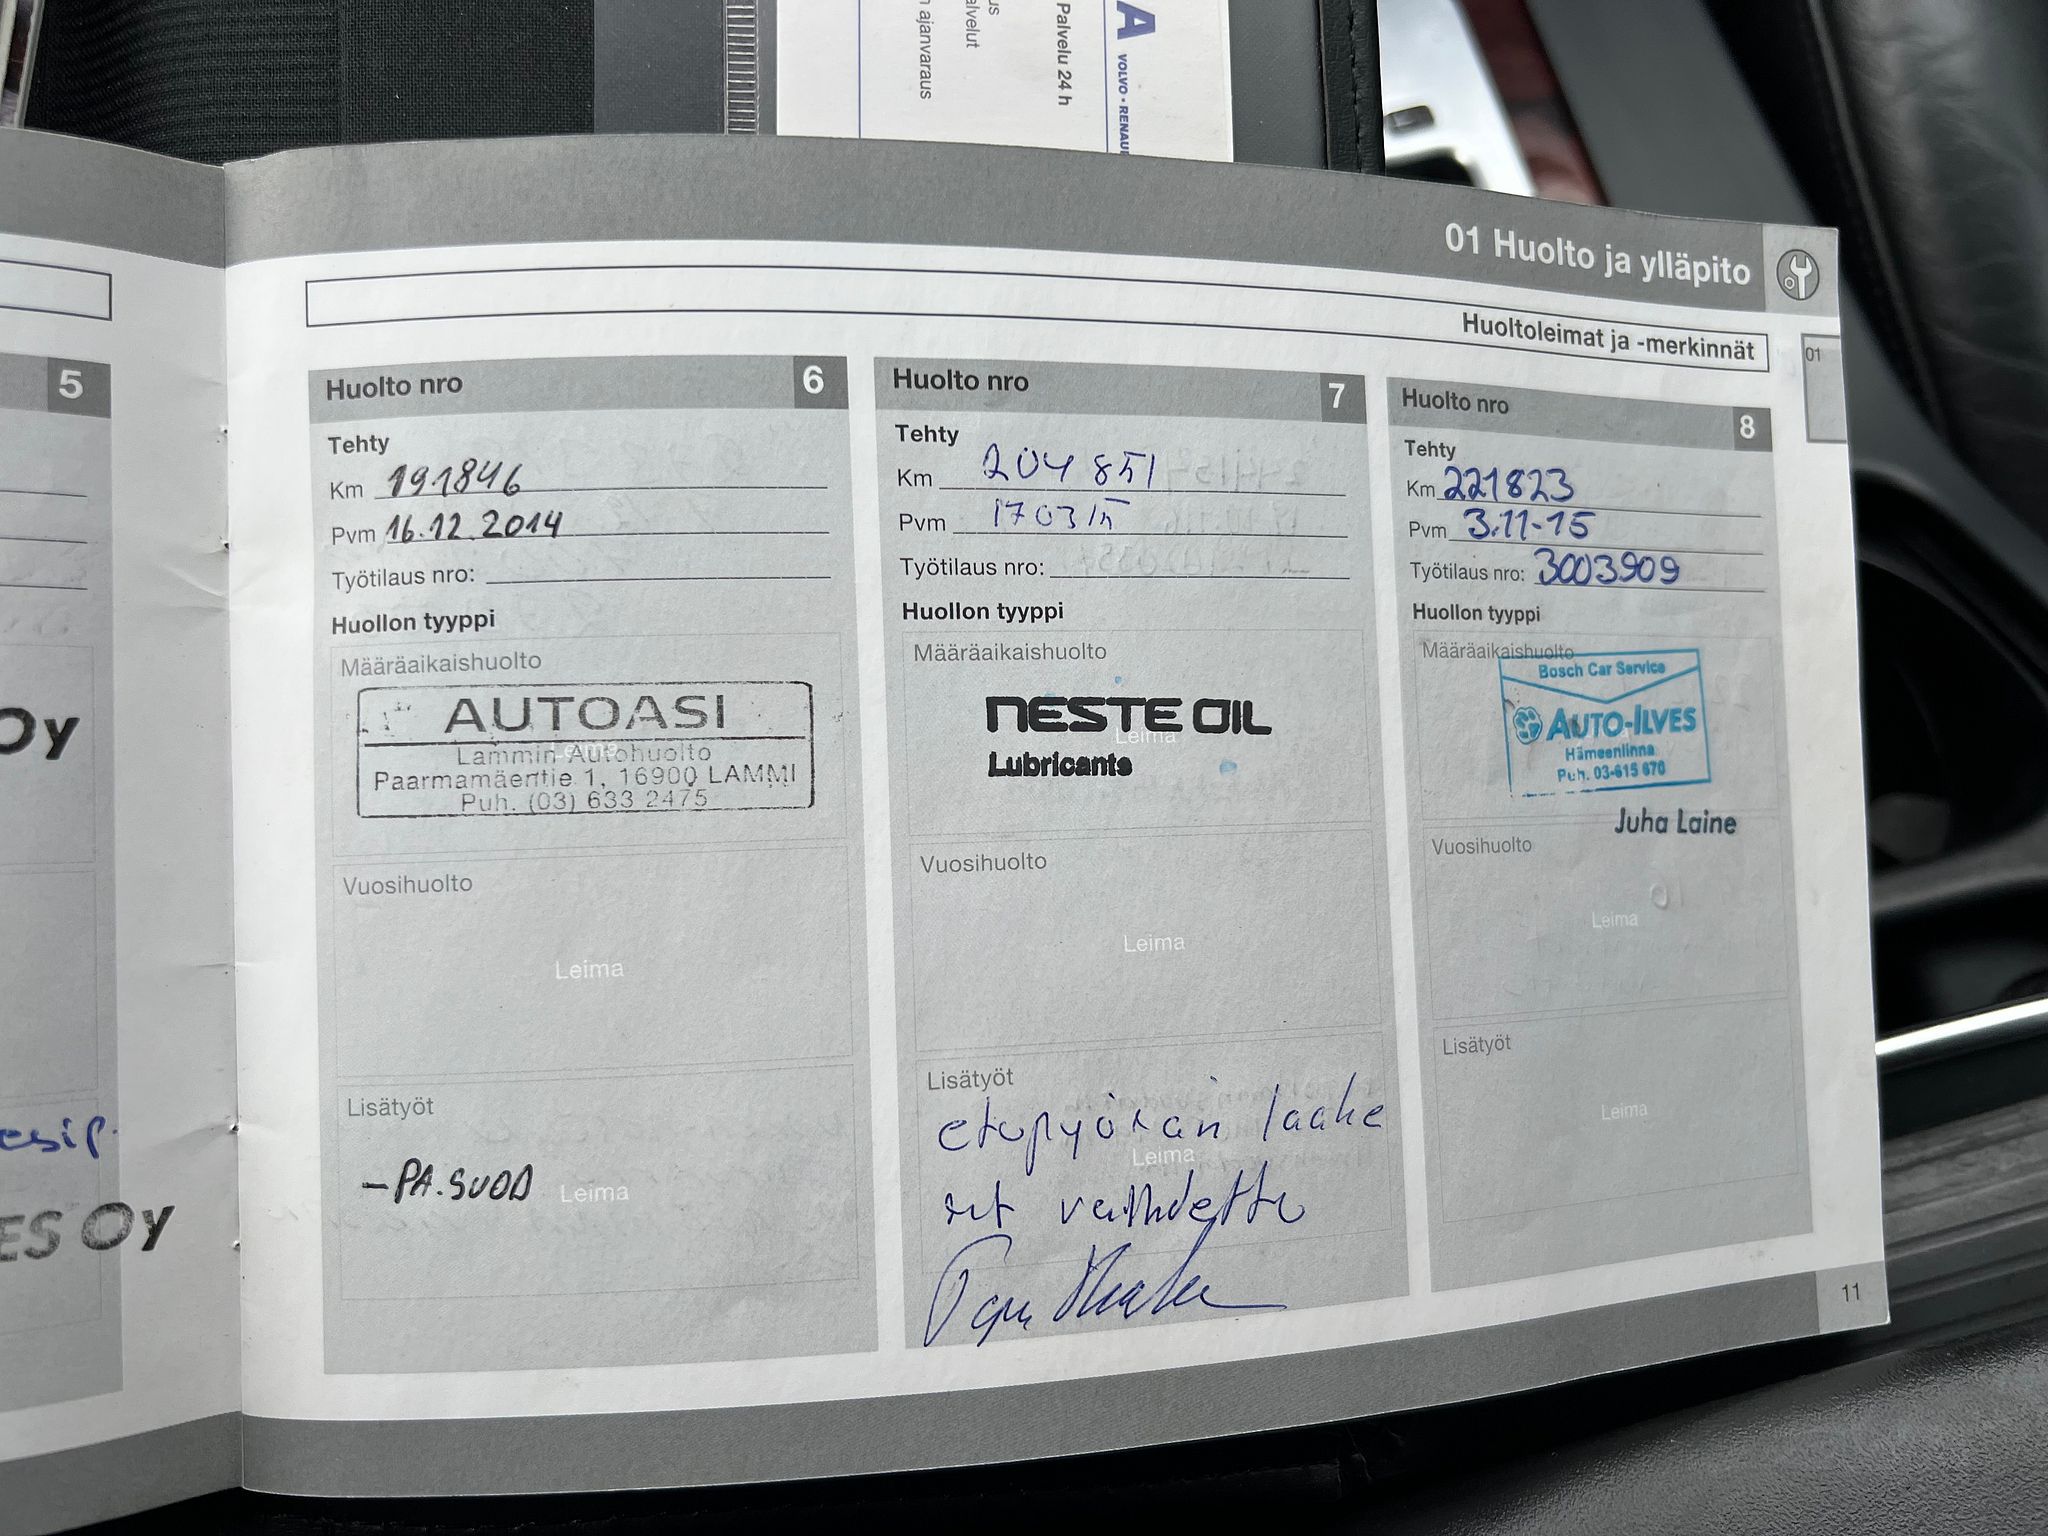 A VOLVO • RENAU
Palvelu 24 h
alvelut
ajanvaraus
01 Huolto ja ylläpito
Huoltoleimat ja -merkinnät
01
5
Oy
esip.
ES Oy
Huolto nro 6
Tehty
Km 191846
Pvm 16.12.2014
Työtilaus nro:
Huollon tyyppi
Määräaikaishuolto
AUTOASI
Leima
Lammin Autohuolto
Paarmamäentie 1, 16900 LAMMI
Puh. (03) 633 2475
Vuosihuolto
Leima
Lisätyöt
-PA.SUOD
Leima
Huolto nro 7
Tehty
Km 204 851
Pvm 170315
Työtilaus nro:
Huollon tyyppi
Määräaikaishuolto
NESTE OIL
Leima
Lubricants
Vuosihuolto
Leima
Lisätyöt
etupyörän laake
Leima
rit vaihdettu
Huolto nro 8
Tehty
Km 221823
Pvm 3.11-15
Työtilaus nro: 3003909
Huollon tyyppi
Määräaikaishuolto
Bosch Car Service
AUTO-ILVES
Hämeenlinna
Puh. 03-615 670
Juha Laine
Vuosihuolto
Leima
Lisätyöt
Leima
11